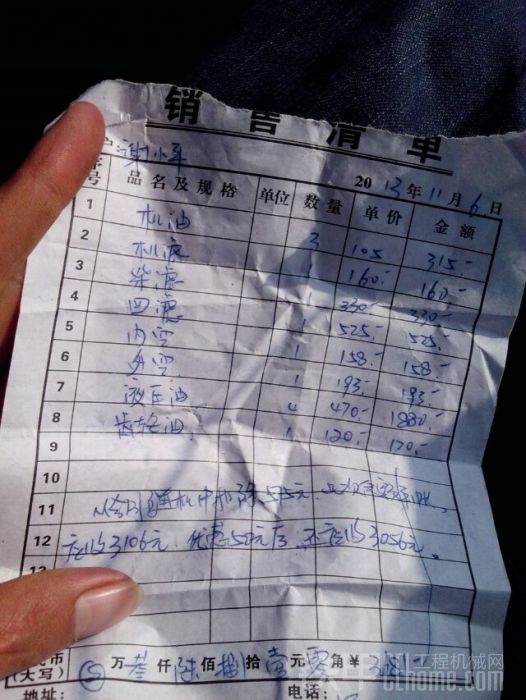 销售清单
户:谢小军
2013年11月6日
号 品名及规格 单位 数量 单价 金额
1 机油 3 105 315.-
2 机滤 1 160.- 160.-
3 柴滤 1 330.- 330.-
4 回滤 1 525.- 525.-
5 内空 1 158.- 158.-
6 外空 1 193.- 193.-
7 液压油 4 470.- 1880.-
8 齿轮油 1 120.- 120.-
9
10
11 中扣除575元
12 应收3106元.优惠50元后.应收3056元。
13
(大写) 万叁仟陆佰捌拾壹元零角¥
地址: 电话:
工程机械网
d1home.com